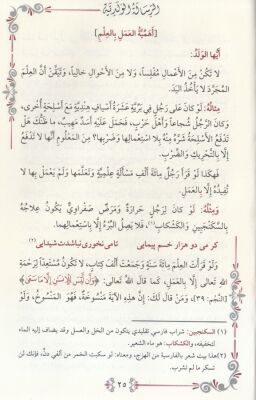 الرسالة الولدية
[أَهَمِّيَّةُ العَمَلِ بِالعِلْمِ]
أَيُّهَا الوَلَدُ:
لَا تَكُنْ مِنَ الأَعْمَالِ مُفْلِسًا، وَلَا مِنَ الأَحْوَالِ خَالِيًا، وَتَيَقَّنْ أَنَّ العِلْمَ
المُجَرَّدَ لَا يَأْخُذُ بِاليَدِ.
مِثَالُهُ: لَوْ كَانَ عَلَى رَجُلٍ فِي بَرِّيَّةٍ عَشَرَةُ أَسْيَافٍ هِنْدِيَّةٍ مَعَ أَسْلِحَةٍ أُخْرَى،
وَكَانَ الرَّجُلُ شُجَاعًا وَأَهْلَ حَرْبٍ، فَحَمَلَ عَلَيْهِ أَسَدٌ مَهِيبٌ، مَا ظَنُّكَ هَلْ
تَدْفَعُ الأَسْلِحَةُ شَرَّهُ مِنْهُ بِلَا اسْتِعْمَالِهَا وَضَرْبِهَا؟ مِنَ المَعْلُومِ أَنَّهَا لَا تَدْفَعُ
إِلَّا بِالتَّحْرِيكِ وَالضَّرْبِ.
فَهَكَذَا لَوْ قَرَأَ رَجُلٌ مِائَةَ أَلْفِ مَسْأَلَةٍ عِلْمِيَّةٍ وَتَعَلَّمَهَا وَلَمْ يَعْمَلْ بِهَا لَا
تُفِيدُهُ إِلَّا بِالعَمَلِ.
وَمِثْلُهُ: لَوْ كَانَ لِرَجُلٍ حَرَارَةٌ وَمَرَضٌ صَفْرَاوِيٌّ يَكُونُ عِلَاجُهُ
بِالسَّكَنْجَبِينِ وَالكَشْكَابِ(١)، فَلَا يَصِلُ البُرْءُ إِلَّا بِاسْتِعْمَالِهِمَا.
كر می دو هزار خم پیمایی تامی نخوری نباشدت شیدایی (٢)
وَلَوْ قَرَأْتَ العِلْمَ مِائَةَ سَنَةٍ وَجَمَعْتَ أَلْفَ كِتَابٍ، لَا تَكُونُ مُسْتَعِدًّا لِرَحْمَةِ
اللهِ تَعَالَى إِلَّا بِالعَمَلِ، كَمَا قَالَ اللهُ تَعَالَى: ﴿وَأَن لَّيْسَ لِلْإِنسَٰنِ إِلَّا مَا سَعَىٰ﴾
(النجم: ٣٩)، وَمَنْ قَالَ لَكَ: إِنَّ هَذِهِ الآيَةَ مَنْسُوخَةٌ، فَهُوَ المَنْسُوخُ، وَلَوْ
(١) السكنجبين: شراب فارسي تقليدي يتكون من الخل والعسل وقد يضاف إليه الماء
لتخفيفه، والكشكاب: هو ماء الشعير.
(٢) هذا بيت شعر بالفارسية من الهزج، ومعناه: لو سكبت الخمر من ألفي دنٍّ، فإنك لن
تسكر ما لم تشرب.
٢٥